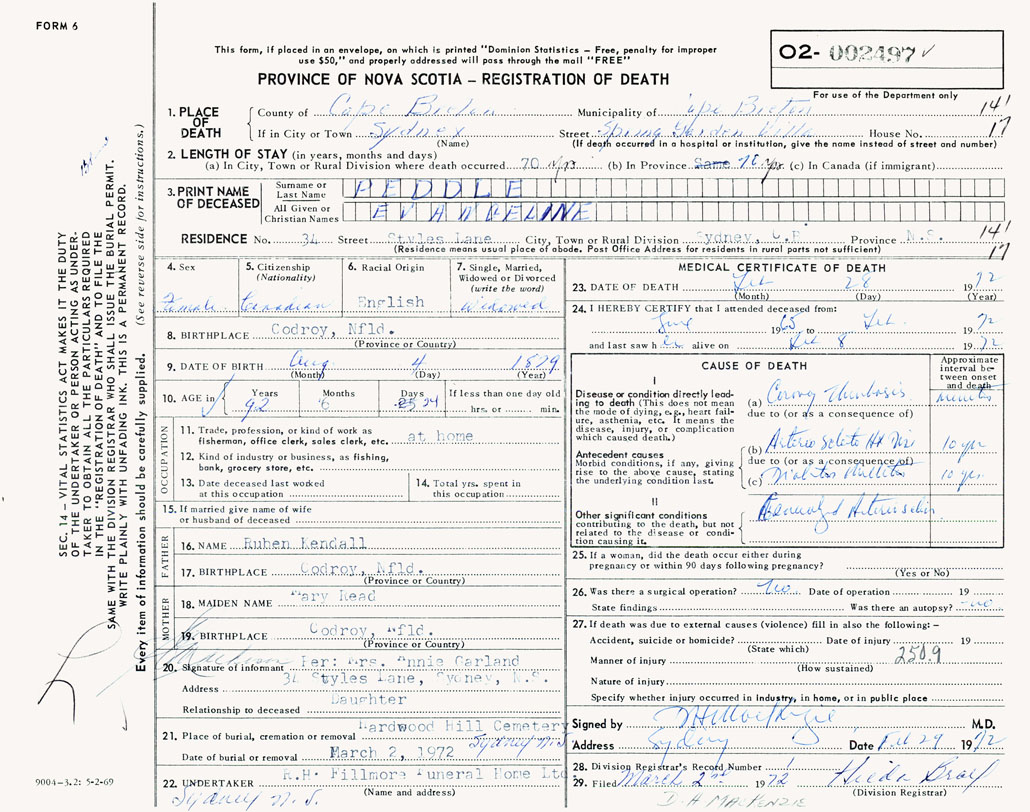 FORM 6
This form, if placed in an envelope, on which is printed "Dominion Statistics – Free, penalty for improper
use $50," and properly addressed will pass through the mail "FREE"
O2- 002497
PROVINCE OF NOVA SCOTIA – REGISTRATION OF DEATH
For use of the Department only
1. PLACE OF DEATH
County of Cape Breton Municipality of Cape Breton 14
If in City or Town Sydney Street Spring Garden Villa House No. 17
(Name) (If death occurred in a hospital or institution, give the name instead of street and number)
2. LENGTH OF STAY (in years, months and days)
(a) In City, Town or Rural Division where death occurred 70 yrs (b) In Province Same 70 yrs (c) In Canada (if immigrant)
3. PRINT NAME OF DECEASED
Surname or Last Name PEDDLE
All Given or Christian Names EVANGELINE
RESIDENCE No. 34 Street Styles Lane City, Town or Rural Division Sydney, C.B. Province N.S. 14 17
(Residence means usual place of abode. Post Office Address for residents in rural parts not sufficient)
4. Sex Female
5. Citizenship (Nationality) Canadian
6. Racial Origin English
7. Single, Married, Widowed or Divorced (write the word) Widowed
8. BIRTHPLACE Codroy, Nfld.
(Province or Country)
9. DATE OF BIRTH Aug 4 1879
(Month) (Day) (Year)
10. AGE in Years 92 Months 6 Days 25 24 If less than one day old hrs. or min.
OCCUPATION
11. Trade, profession, or kind of work as fisherman, office clerk, sales clerk, etc. at home
12. Kind of industry or business, as fishing, bank, grocery store, etc.
13. Date deceased last worked at this occupation
14. Total yrs. spent in this occupation
15. If married give name of wife or husband of deceased
FATHER
16. NAME Ruben Kendall
17. BIRTHPLACE Codroy, Nfld.
(Province or Country)
MOTHER
18. MAIDEN NAME Mary Read
19. BIRTHPLACE Codroy, Nfld.
(Province or Country)
20. Signature of informant Per: Mrs. Annie Garland
Address 34 Styles Lane, Sydney, N.S.
Relationship to deceased Daughter
21. Place of burial, cremation or removal Hardwood Hill Cemetery
Sydney N.S.
Date of burial or removal March 2, 1972
22. UNDERTAKER R.H. Fillmore Funeral Home Ltd
(Name and address)
Sydney N.S.
MEDICAL CERTIFICATE OF DEATH
23. DATE OF DEATH Feb 28 1972
(Month) (Day) (Year)
24. I HEREBY CERTIFY that I attended deceased from:
June 1965 to Feb. 1972
and last saw her alive on Feb 8 1972
CAUSE OF DEATH
Approximate interval between onset and death
I
Disease or condition directly leading to death (This does not mean the mode of dying, e.g., heart failure, asthenia, etc. it means the disease, injury, or complication which caused death.)
(a) Coronary Thrombosis minutes
due to (or as a consequence of)
Antecedent causes
Morbid conditions, if any, giving rise to the above cause, stating the underlying condition last.
(b) Arterio Sclerotic Ht Dis 10 yrs
due to (or as a consequence of)
(c) Diabetes Mellitus 10 yrs
II
Other significant conditions contributing to the death, but not related to the disease or condition causing it.
Generalized Arteriosclerosis
25. If a woman, did the death occur either during pregnancy or within 90 days following pregnancy?
(Yes or No)
26. Was there a surgical operation? no Date of operation 19
State findings Was there an autopsy? no
27. If death was due to external causes (violence) fill in also the following: –
Accident, suicide or homicide? Date of injury 19
(State which)
250.9
Manner of injury
(How sustained)
Nature of injury
Specify whether injury occurred in industry, in home, or in public place
Signed by D H MacKenzie M.D.
Address Sydney Date Feb 29 1972
28. Division Registrar's Record Number
29. Filed March 2nd 1972
(Division Registrar)
D. H MACKENZIE
SEC. 14 – VITAL STATISTICS ACT MAKES IT THE DUTY
OF THE UNDERTAKER OR PERSON ACTING AS UNDER-
TAKER TO OBTAIN ALL THE PARTICULARS REQUIRED
IN THE "REGISTRATION OF DEATH" AND TO FILE THE
SAME WITH THE DIVISION REGISTRAR WHO SHALL ISSUE THE BURIAL PERMIT.
WRITE PLAINLY WITH UNFADING INK. THIS IS A PERMANENT RECORD.
Every item of information should be carefully supplied. (See reverse side for instructions.)
9004-3.2: 5-2-69